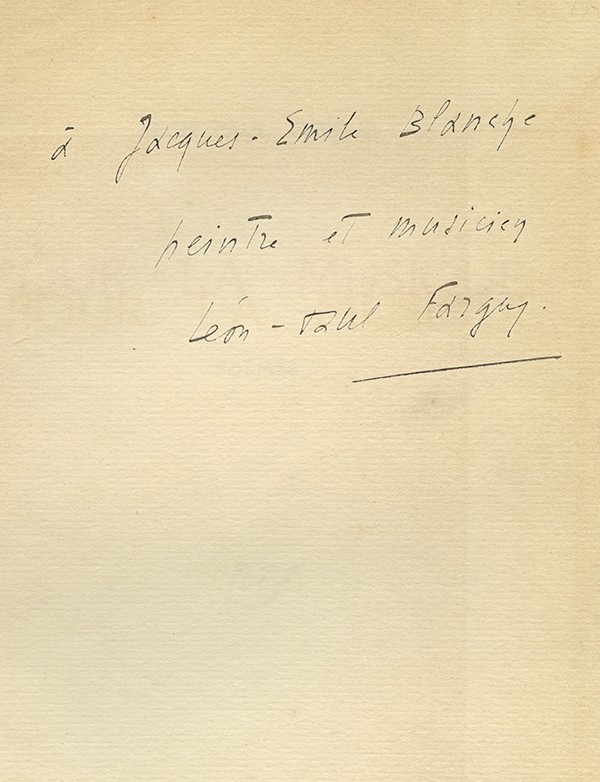 à Jacques-Emile Blanche
peintre et musicien
Léon-Paul Fargue.